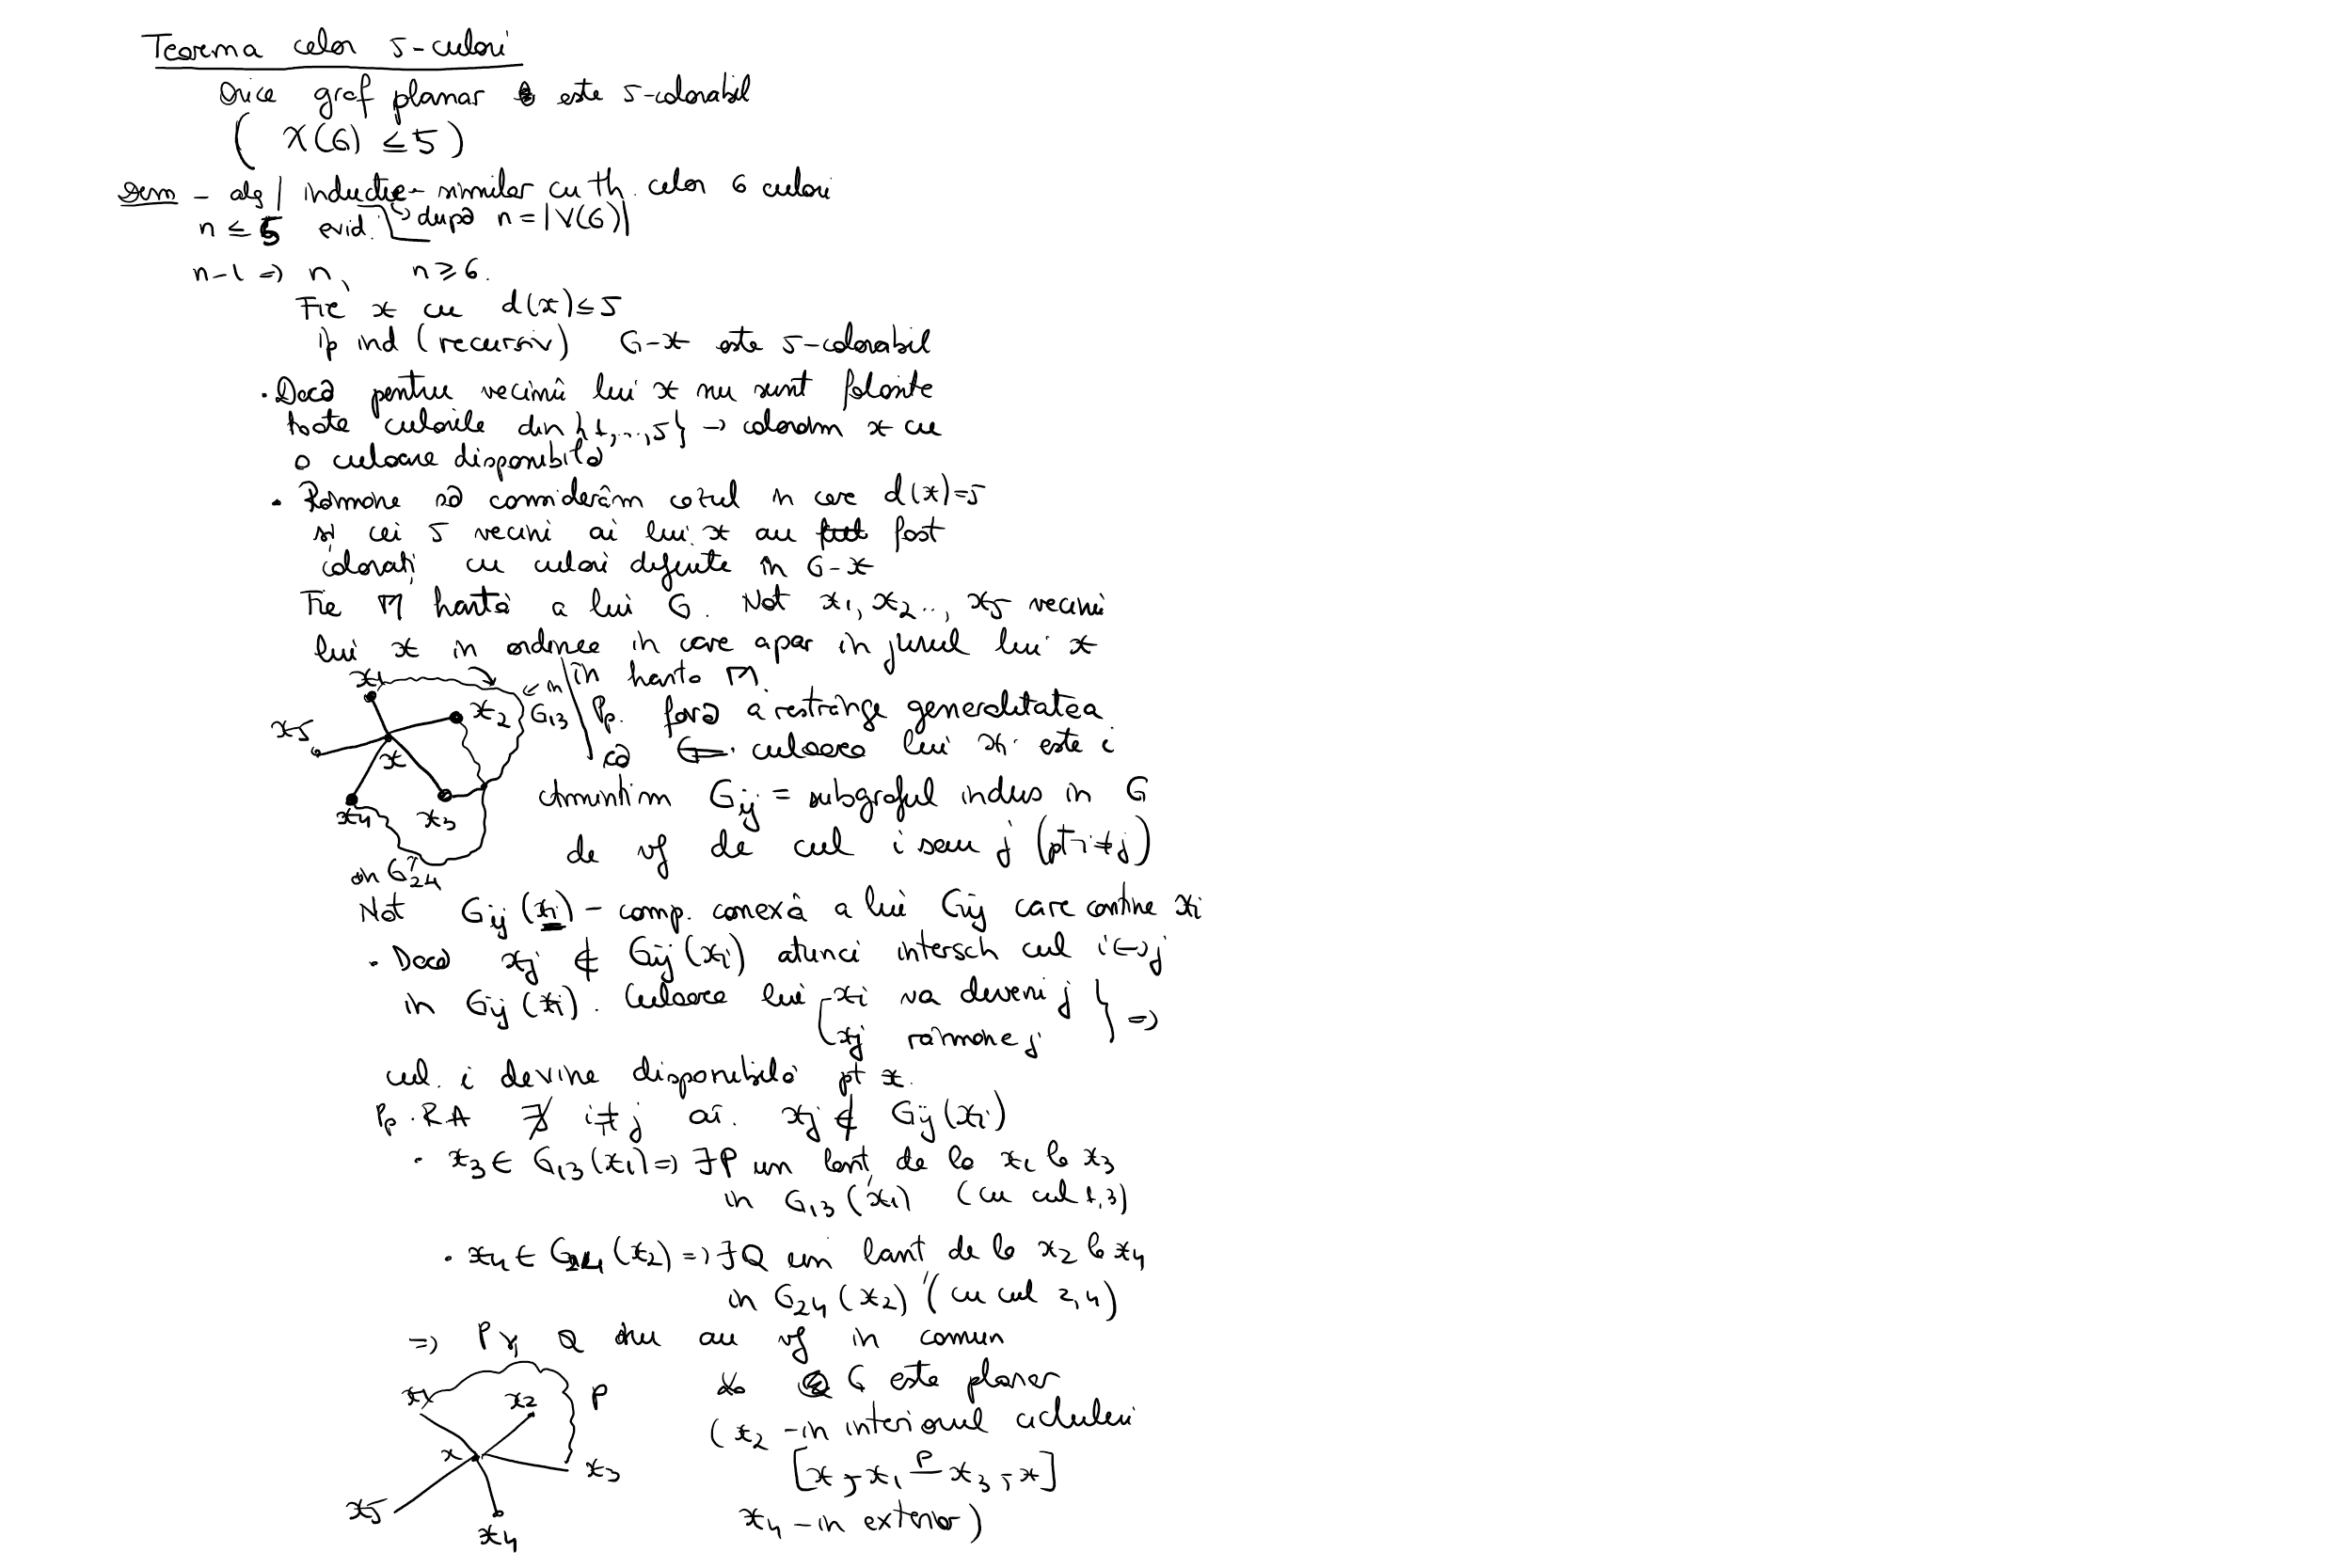 Teorema celor 5-culori
Orice graf planar este 5-colorabil
( χ(G) ≤ 5 )
Dem - alg | inducție - similar cu th. celor 6 culori
după n = |V(G)|
n ≤ 5 evid.
n-1 => n, n ≥ 6.
Fie x cu d(x) ≤ 5
ip ind (recursiv) G-x este 5-colorabil
• Dacă pentru vecinii lui x nu sunt folosite
toate culorile din {1,...,5} → colorăm x cu
o culoare disponibilă
• Rămâne să considerăm cazul în care d(x)=5
și cei 5 vecini ai lui x au fost
colorați cu culori diferite în G-x
Fie M hartă a lui G. Not x1, x2 .., x5 vecinii
lui x în ordinea în care apar în jurul lui x
în harta M.
x1
x2
x5
x
x4
x3
← în G13
în G24
Pp. fără a restrânge generalitatea
că culoarea lui xi este i
Amintim Gij = subgraful indus în G
de vf de cul i sau j (pt i≠j)
Not Gij (xi) - comp. conexă a lui Gij care conține xi
• Dacă xj ∉ Gij (xi) atunci intersch cul i↔j
în Gij (xi). Culoarea lui xi va deveni j
xj rămâne j } =>
cul. i devine disponibilă pt x.
Pp. RA ∄ i≠j aî. xj ∉ Gij (xi)
• x3 ∈ G13 (x1) => ∃P un lanț de la x1 la x3
în G13 (x1) (cu cul 1,3)
• x4 ∈ G24 (x2) => ∃Q un lanț de la x2 la x4
în G24 (x2) (cu cul 2,4)
=> P și Q nu au vf în comun
G este planar
(x2 - în interiorul ciclului
[x, x1 P x3, x]
x4 - în exterior)
x1
x2
P
x
x3
x5
x4